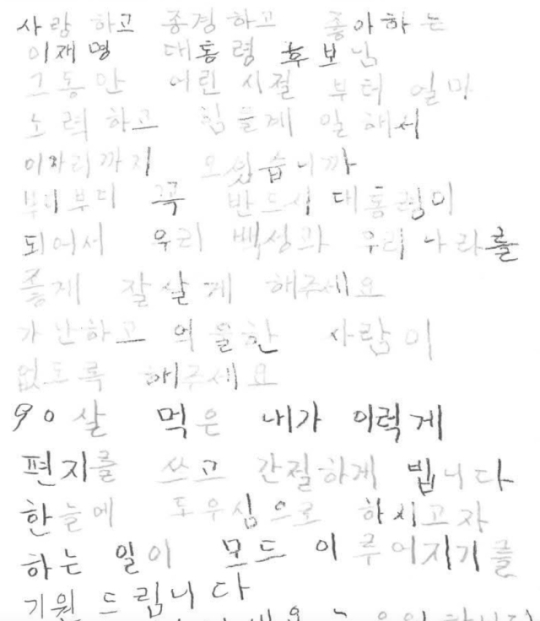 사람 하고 존경 하고 좋아 하 는
이재명 대통령 후보님
그동안 어린 시절 부터 얼마
노력 하고 힘들게 일 해서
이자리까지 오있습니까
부디부디 꼭 반드시 대통령이
되어서 우리 백성과 우리 나라를
좋게 잘 살 게 해주세요
가난하고 억울한 사람이
없도록 해주세요
90살 먹은 내가 이렇게
편지를 쓰고 간절하게 빕니다
한늘에 도우심으로 하시고자
하는 일이 모드 이루어지기를
기원 드립니다